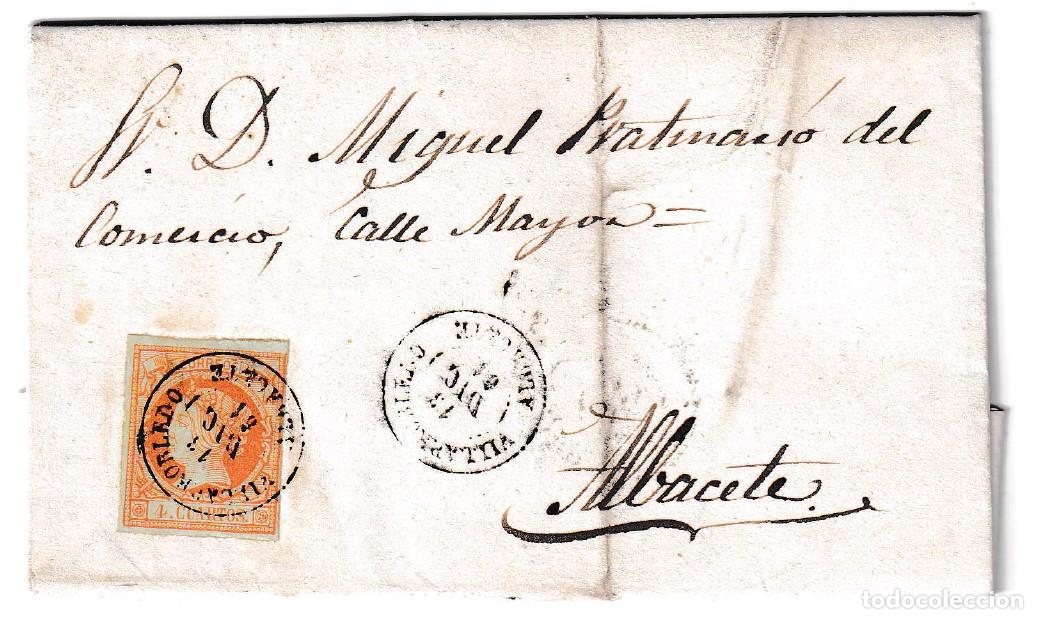 Sr. D. Miguel Pratmarsó del
Comercio, Calle Mayor=
Albacete.
VILLARROBLEDO
ALBACETE
13
DIC
61
VILLARROBLEDO
ALBACETE
13
DIC
61
4. CUARTOS.
todocoleccion